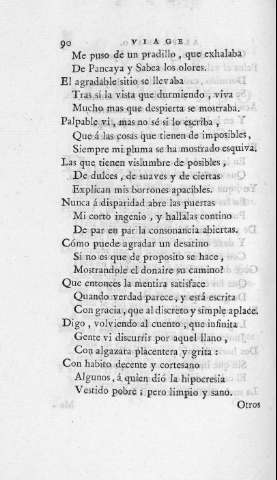 90 VIAGE
Me puso de un pradillo, que exhalaba
De Pancaya y Sabea los olores.
El agradable sitio se llevaba
Tras sí la vista que durmiendo, viva
Mucho mas que despierta se mostraba.
Palpable vi, mas no sé si lo escriba,
Que á las cosas que tienen de imposibles,
Siempre mi pluma se ha mostrado esquiva.
Las que tienen vislumbre de posibles,
De dulces, de suaves y de ciertas
Explican mis borrones apacibles.
Nunca á disparidad abre las puertas
Mi corto ingenio, y hallalas contino
De par en par la consonancia abiertas.
Cómo puede agradar un desatino
Si no es que de proposito se hace,
Mostrandole el donaire su camino?
Que entonces la mentira satisface
Quando verdad parece, y está escrita
Con gracia, que al discreto y simple aplace.
Digo, volviendo al cuento, que infinita
Gente vi discurrir por aquel llano,
Con algazara placentera y grita:
Con habito decente y cortesano
Algunos, á quien dió la hipocresia
Vestido pobre; pero limpio y sano.
Otros